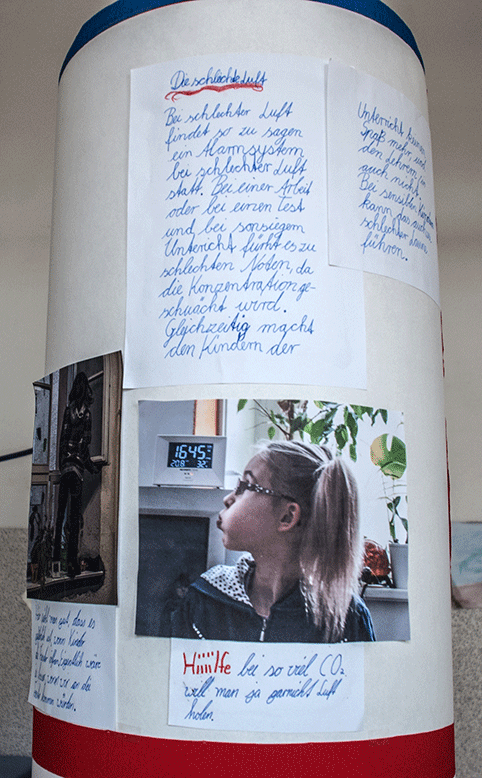 Die schlechte Luft
Bei schlechter Luft
findet so zu sagen
ein Alarmsystem
bei schlechter Luft
statt. Bei einer Arbeit
oder bei einen Test
und bei sonsiegem
Unterricht führt es zu
schlechten Noten, da
die Konzentration ge-
schwächt wird.
Gleichzeitig macht
den Kindern der
Unterricht keinen
Spaß mehr und
den Lehrern
auch nicht.
Bei sensiblen
kann das auch
schlechter
führen.
1645
20.8 32
Hiiilfe bei so viel CO2
will man ja garnicht Luft
holen.
man gut, dass es
Kinder
wäre
wenn
werden.